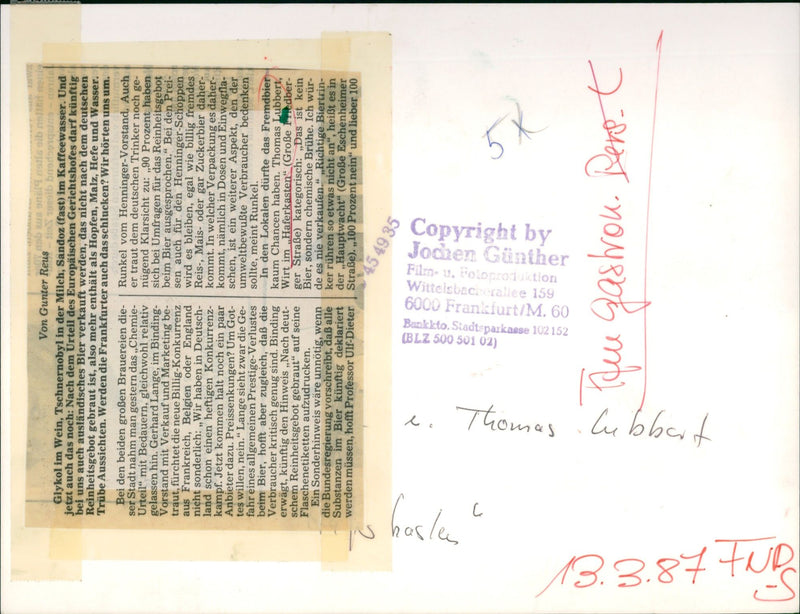 Von Gunter Reus
Glykol im Wein, Tschernobyl in der Milch, Sandoz (fast) im Kaffeewasser. Und
jetzt auch das noch: Nach dem Urteil des Europäischen Gerichtshofes darf künftig
bei uns auch ausländisches Bier verkauft werden, das nicht nach dem deutschen
Reinheitsgebot gebraut ist, also mehr enthält als Hopfen, Malz, Hefe und Wasser.
Trübe Aussichten. Werden die Frankfurter auch das schlucken? Wir hörten uns um.
Bei den beiden großen Brauereien die-
ser Stadt nahm man gestern das „Chemie-
Urteil“ mit Bedauern, gleichwohl relativ
gelassen hin. Gerhard Lange, im Binding-
Vorstand mit Verkauf und Marketing be-
traut, fürchtet die neue Billig-Konkurrenz
aus Frankreich, Belgien oder England
nicht sonderlich: „Wir haben in Deutsch-
land schon einen heftigen Konkurrenz-
kampf. Jetzt kommen halt noch ein paar
Anbieter dazu. Preissenkungen? Um Got-
tes willen, nein.“ Lange sieht zwar die Ge-
fahr eines allgemeinen Prestige-Verlustes
beim Bier, hofft aber zugleich, daß die
Verbraucher kritisch genug sind. Binding
erwägt, künftig den Hinweis „Nach deut-
schem Reinheitsgebot gebraut“ auf seine
Flaschenetiketten aufzudrucken.
Ein Sonderhinweis wäre unnötig, wenn
die Bundesregierung vorschreibt, daß alle
Substanzen im Bier künftig deklariert
werden müssen, hofft Professor Ulf-Dieter
Runkel vom Henninger-Vorstand. Auch
er traut dem deutschen Trinker noch ge-
nügend Klarsicht zu: „90 Prozent haben
sich bei Umfragen für das Reinheitsgebot
beim Bier ausgesprochen.“ Bei den Prei-
sen auch für den Henninger-Schoppen
wird es bleiben, egal wie billig fremdes
Reis-, Mais- oder gar Zuckerbier daher-
kommt. In welcher Verpackung es daher-
kommt, nämlich in Dosen und Einwegfla-
schen, ist ein weiterer Aspekt, den der
umweltbewußte Verbraucher bedenken
sollte, meint Runkel.
In den Lokalen dürfte das Fremdbier
kaum Chancen haben. Thomas Lubbert,
Wirt im „Haferkasten“ (Große Friedber-
ger Straße) kategorisch: „Das ist kein
Bier, sondern chemische Brühe. Ich wür-
de es nie verkaufen.“ „Richtige Biertrin-
ker rühren so etwas nicht an“, heißt es in
der „Hauptwacht“ (Große Eschenheimer
Straße). „100 Prozent nein“ und lieber 100
454935
5x
Copyright by
Jochen Günther
Film- u. Fotoproduktion
Wittelsbacherallee 159
6000 Frankfurt/M. 60
Bankkto. Stadtsparkasse 102152
(BLZ 500 501 02)
gastron.
Thomas Lubbert
kasten“
13.3.87 FND
-S